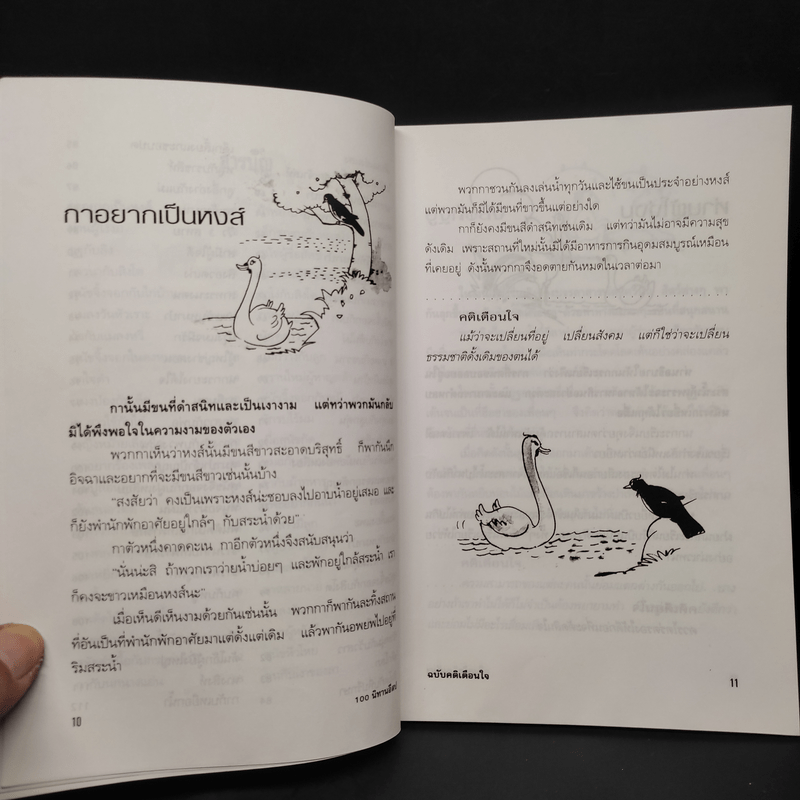 กาอยากเป็นหงส์
กานั้นมีขนที่ดำสนิทและเป็นเงางาม แต่ทว่าพวกมันกลับ
มิได้พึงพอใจในความงามของตัวเอง
พวกกาเห็นว่าหงส์นั้นมีขนสีขาวสะอาดบริสุทธิ์ ก็พากันนึก
อิจฉาและอยากที่จะมีขนสีขาวเช่นนั้นบ้าง
"สงสัยว่า คงเป็นเพราะหงส์น่ะชอบลงไปอาบน้ำอยู่เสมอ และ
ก็ยังพำนักพักอาศัยอยู่ใกล้ๆ กับสระน้ำด้วย"
กาตัวหนึ่งคาดคะเน กาอีกตัวหนึ่งจึงสนับสนุนว่า
"นั่นน่ะสิ ถ้าพวกเราว่ายน้ำบ่อยๆ และพักอยู่ใกล้สระน้ำ เรา
ก็คงจะขาวเหมือนหงส์นะ"
เมื่อเห็นดีเห็นงามด้วยกันเช่นนั้น พวกกาก็พากันละทิ้งสถาน
ที่อันเป็นที่พำนักพักอาศัยมาแต่ตั้งแต่เดิม แล้วพากันอพยพไปอยู่ที่
ริมสระน้ำ
100 นิทานอีสป
10
พวกกาชวนกันลงเล่นน้ำทุกวันและไซ้ขนเป็นประจำอย่างหงส์
แต่พวกมันก็มิได้มีขนที่ขาวขึ้นแต่อย่างใด
กาก็ยังคงมีขนสีดำสนิทเช่นเดิม แต่ทว่ามันไม่อาจมีความสุข
ดังเดิม เพราะสถานที่ใหม่นั้นมิได้มีอาหารการกินอุดมสมบูรณ์เหมือน
ที่เคยอยู่ ดังนั้นพวกกาจึงอดตายกันหมดในเวลาต่อมา
คติเตือนใจ
แม้ว่าจะเปลี่ยนที่อยู่ เปลี่ยนสังคม แต่ก็ใช่ว่าจะเปลี่ยน
ธรรมชาติดั้งเดิมของตนได้
ฉบับคติเตือนใจ
11